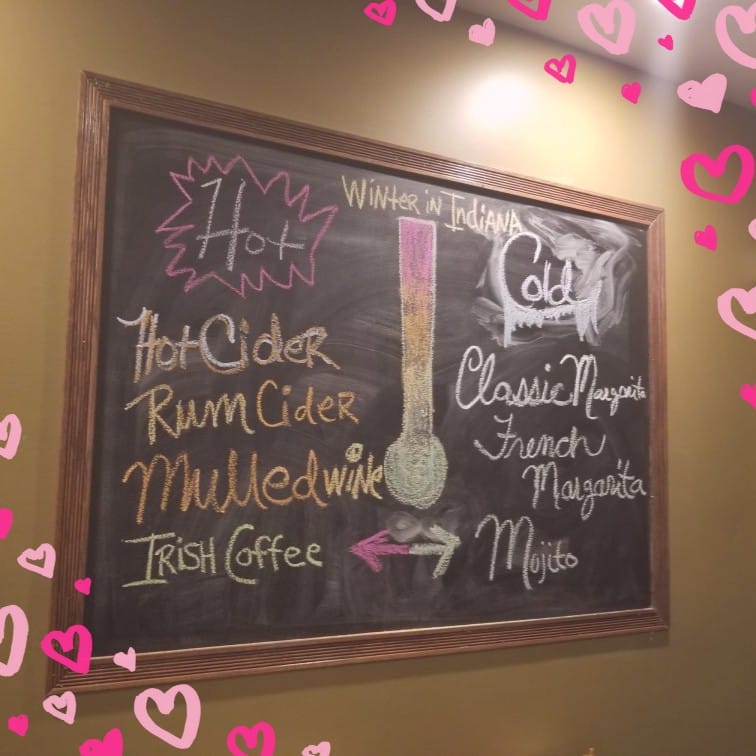 Winter in Indiana
Hot
Hot Cider
Rum Cider
Mulled wine
Irish Coffee
Cold
Classic Margarita
French
Margarita
Mojito